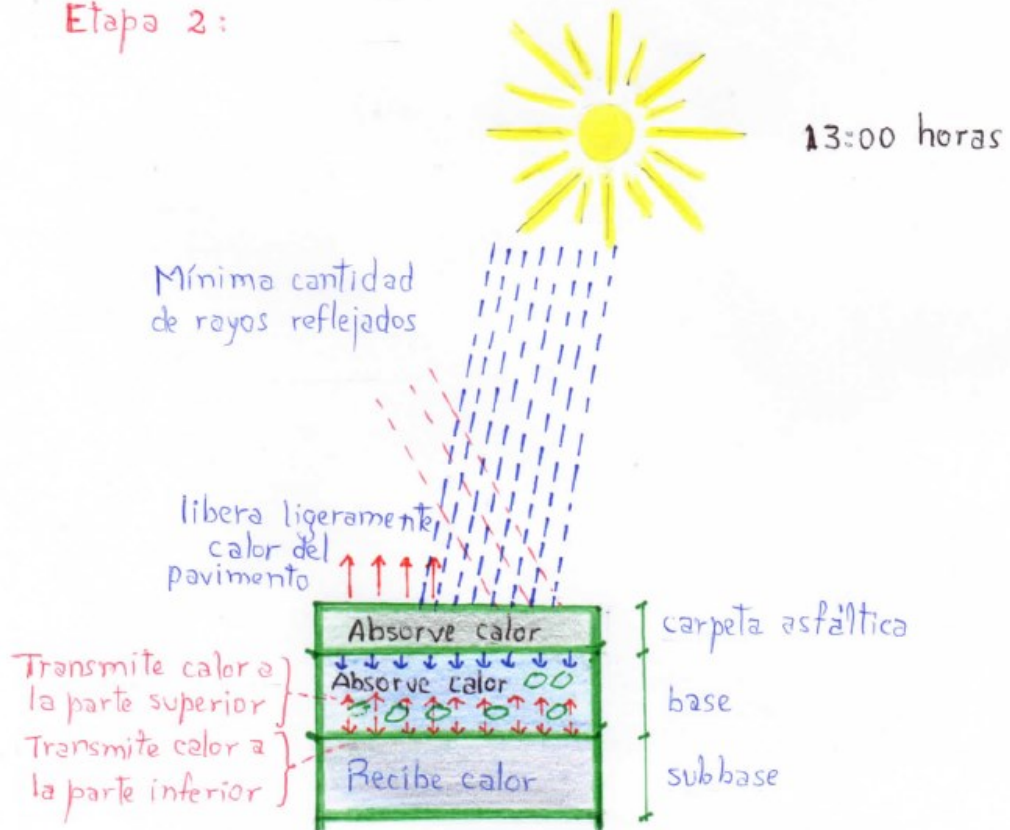 Etapa 2:
13:00 horas
Mínima cantidad
de rayos reflejados
libera ligeramente
calor del
pavimento
Absorve calor
carpeta asfáltica
Transmite calor a
la parte superior
Absorve calor
base
Transmite calor a
la parte inferior
Recibe calor
subbase